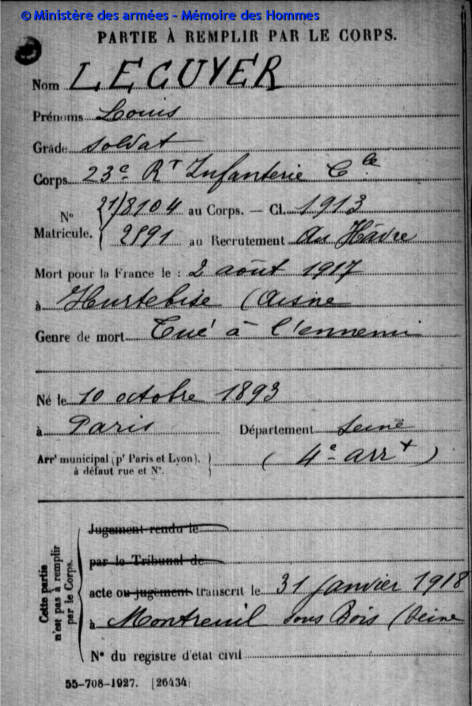 © Ministère des armées - Mémoire des Hommes
PARTIE À REMPLIR PAR LE CORPS.
Nom LECUYER
Prénoms Louis
Grade soldat
Corps 23e Rt Infanterie Cle
N° 21/8104 au Corps. — Cl. 1913
Matricule. 2191 au Recrutement au Havre
Mort pour la France le : 2 août 1917
à Hurtebise (Aisne
Genre de mort Tué à l'ennemi
Né le 10 octobre 1893
à Paris Département Seine
Arrt municipal (pr Paris et Lyon), à défaut rue et N°. (4e arrt)
Jugement rendu le
par le Tribunal de
acte ou jugement transcrit le 31 janvier 1918
à Montreuil sous Bois (Seine
N° du registre d'état civil
Cette partie
n'est pas à remplir
par le Corps.
55-708-1927. [26434]